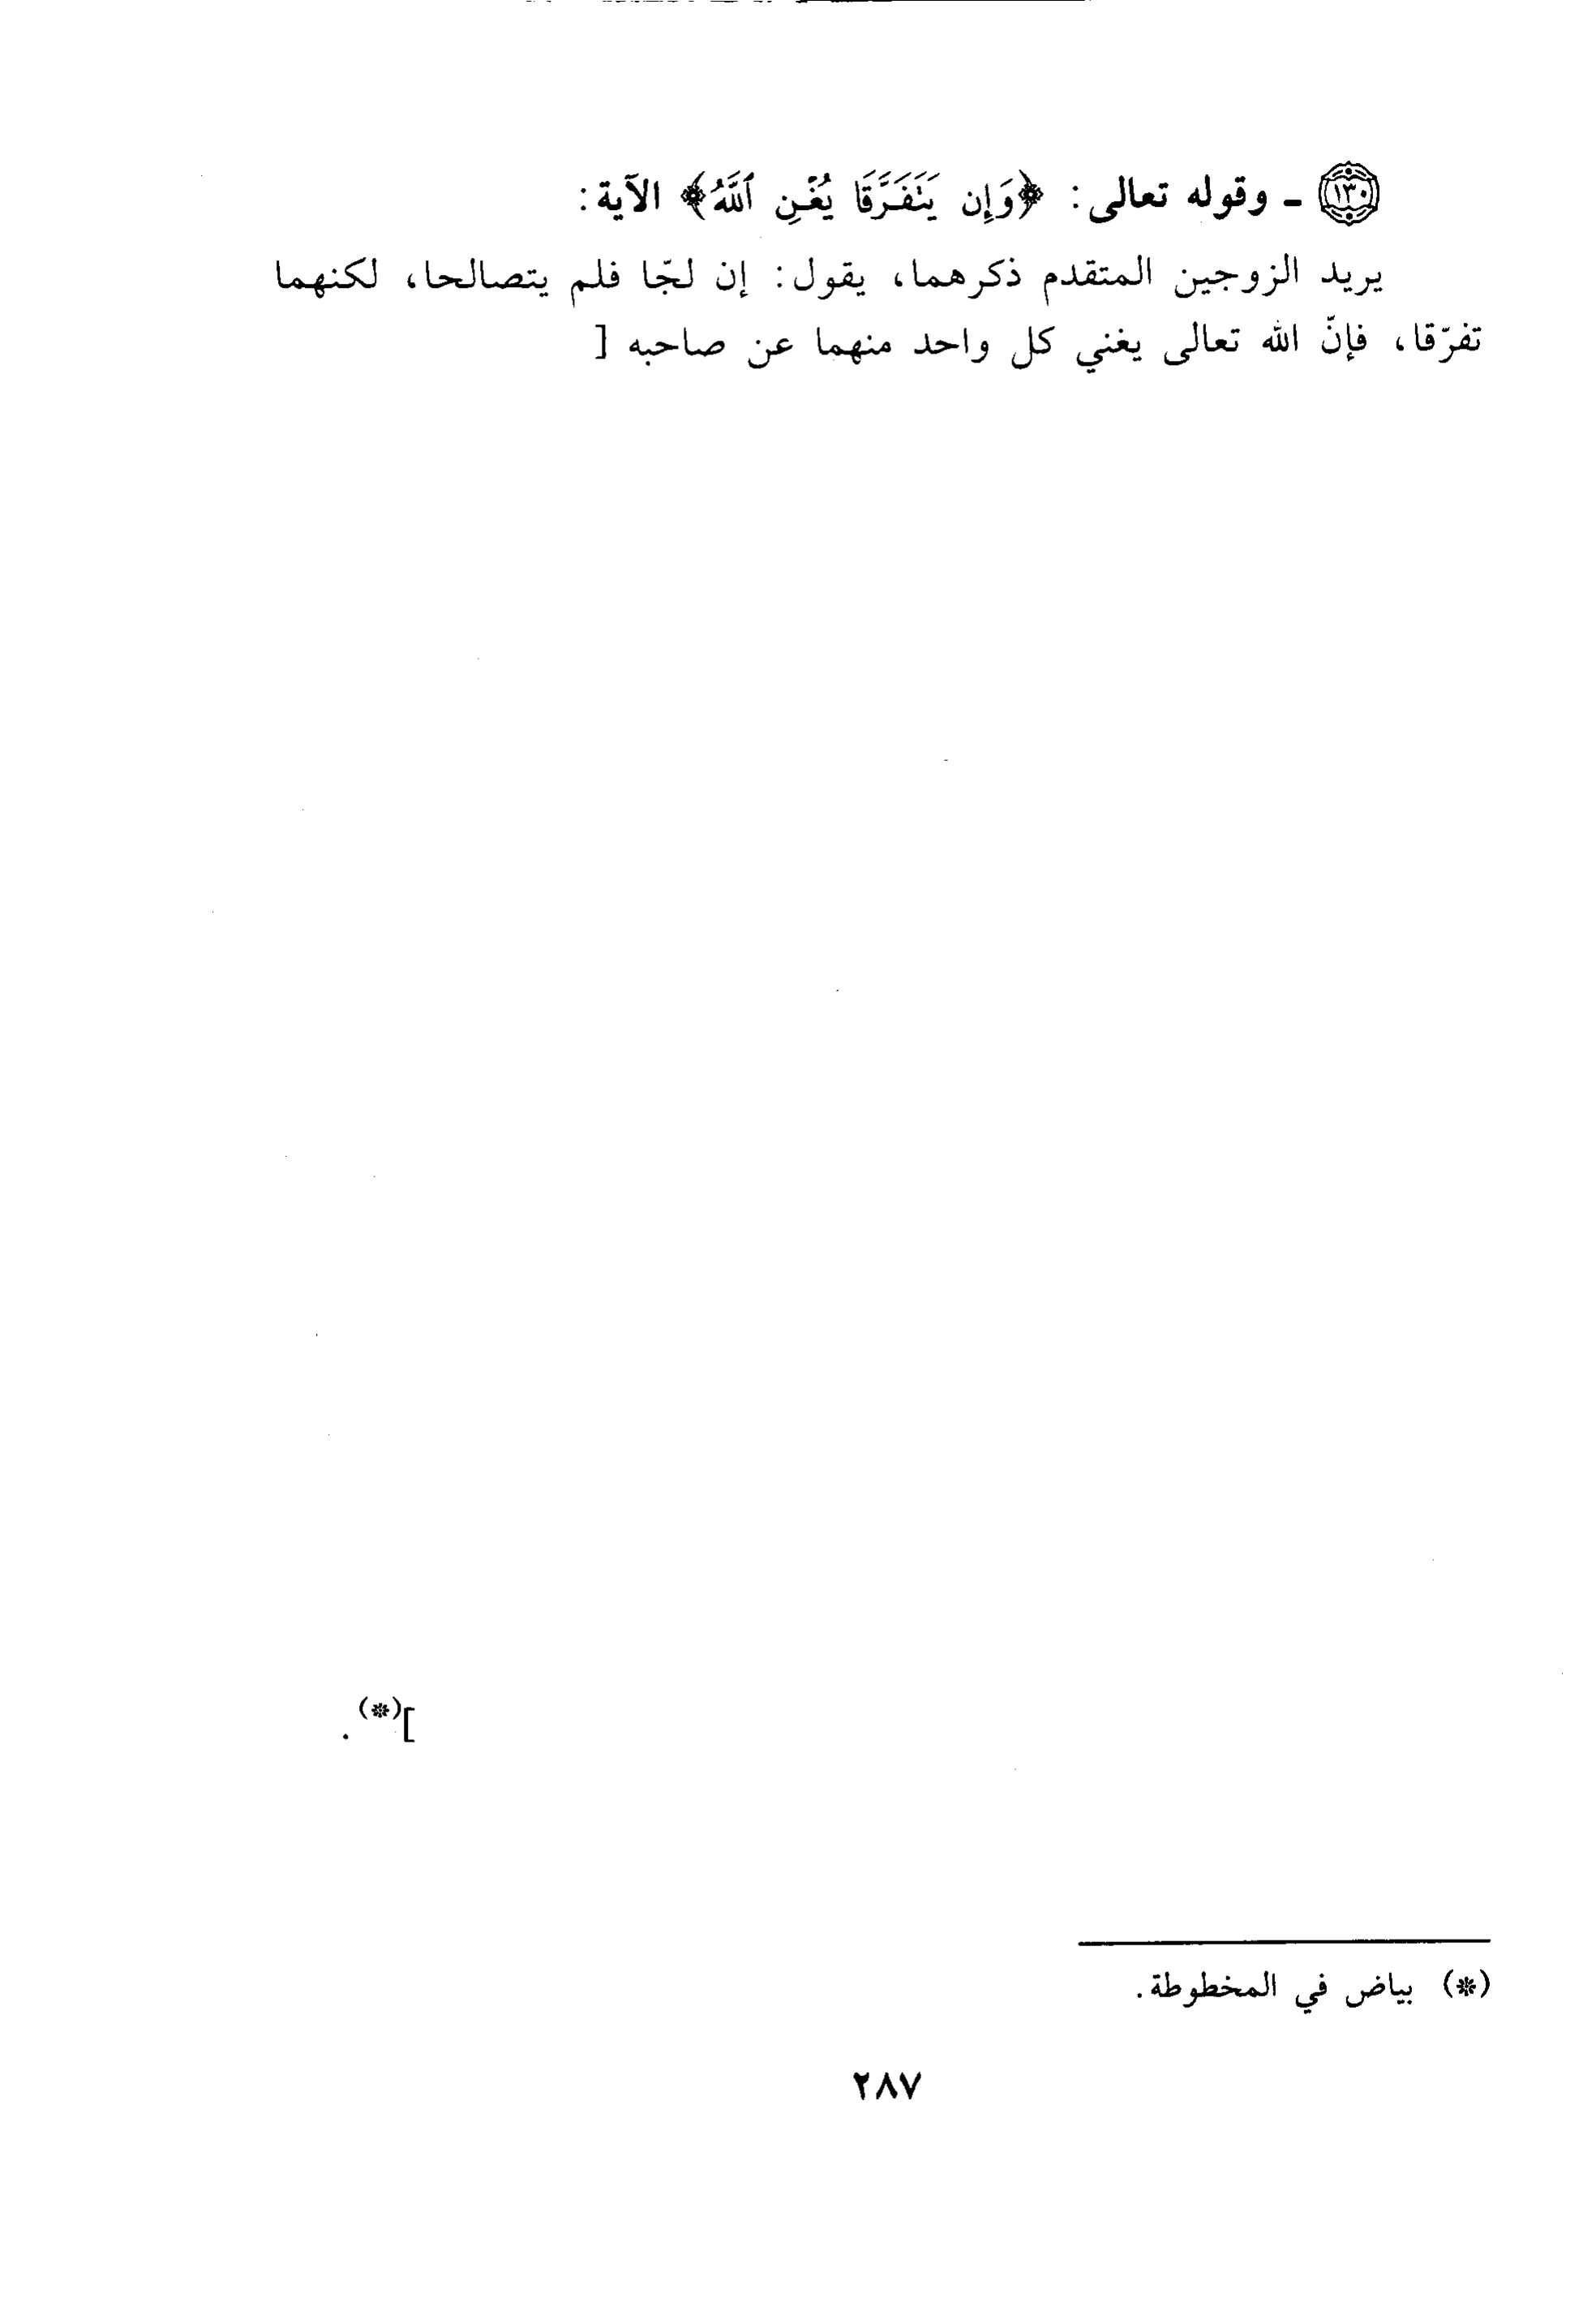 (١٣٠) ـ وقوله تعالى: ﴿وَإِن يَتَفَرَّقَا يُغْنِ ٱللَّهُ﴾ الآية:
يريد الزوجين المتقدم ذكرهما، يقول: إن لجّا فلم يتصالحا، لكنهما
تفرّقا، فإنّ الله تعالى يغني كل واحد منهما عن صاحبه [
](*).
(*) بياض في المخطوطة.
٢٨٧